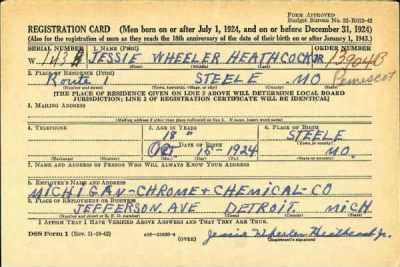 Form Approved
Budget Bureau No. 33-R012-42
REGISTRATION CARD (Men born on or after July 1, 1924, and on or before December 31, 1924)
(Also for the registration of men as they reach the 18th anniversary of the date of their birth on or after January 1, 1943.)
SERIAL NUMBER 1. NAME (Print) ORDER NUMBER
JESSIE WHEELER HEATHCOCK JR.
2. PLACE OF RESIDENCE (Print)
Route 1 STEELE MO Pemiscot
[THE PLACE OF RESIDENCE GIVEN ON LINE 2 ABOVE WILL DETERMINE LOCAL BOARD
JURISDICTION; LINE 2 OF REGISTRATION CERTIFICATE WILL BE IDENTICAL]
3. MAILING ADDRESS
[Mailing address if other than place indicated on line 2. If same, insert word same]
4. TELEPHONE 5. AGE IN YEARS 6. PLACE OF BIRTH
18 STEELE
DATE OF BIRTH (Town or county)
Oct 15 1924 MO.
7. NAME AND ADDRESS OF PERSON WHO WILL ALWAYS KNOW YOUR ADDRESS
8. EMPLOYER'S NAME AND ADDRESS
MICHIGAN-CHROME & CHEMICAL-CO
9. PLACE OF EMPLOYMENT OR BUSINESS
JEFFERSON. AVE DETROIT MICH
(Number and street or R. F. D. number) (Town) (County) (State)
I AFFIRM THAT I HAVE VERIFIED ABOVE ANSWERS AND THAT THEY ARE TRUE.
DSS Form 1 (OVER)
(Registrant's signature)